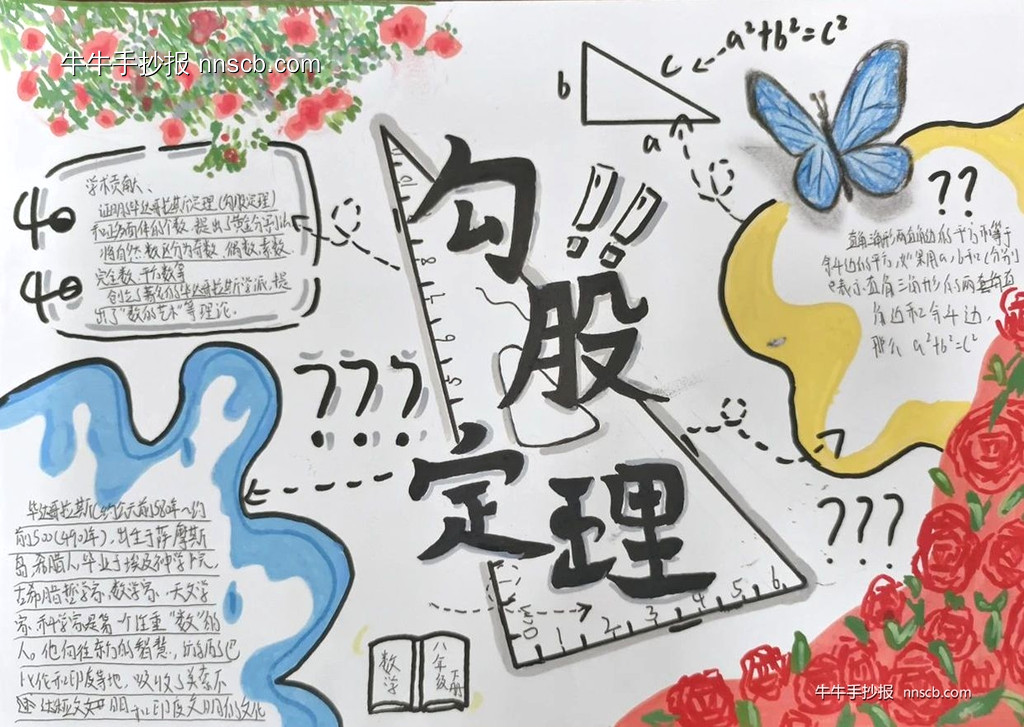 牛牛手抄报 nnscb.com
a²+b²=c²
b
c
a
勾
股
定
理
!!
学术贡献、
证明毕达哥拉斯定理(勾股定理)
和正多面体的个数,提出了黄金分割
将自然数区分为奇数、偶数、素数、
完全数、平方数等
创立了著名的毕达哥拉斯学派,提
出了"数的艺术"等理论。
??
直角三角形两直角边的平方和等于
斜边的平方,如果用a,b和c分别
表示直角三角形的两直角
角边和斜边,
那么 a²+b²=c²
???
毕达哥拉斯(约公元前580年~约
前500(490年),出生于萨摩斯
岛,希腊人,毕业于埃及神学院,
古希腊哲学家、数学家、天文学
家、科学家是第一个注重"数"的
人。他向往东方的智慧,
比伦和印度等地,吸收了美索不
达米亚文明和印度文明的文化
???
0 1 2 3 4 5 6
数学
八年级
下册
牛牛手抄报 nnscb.com